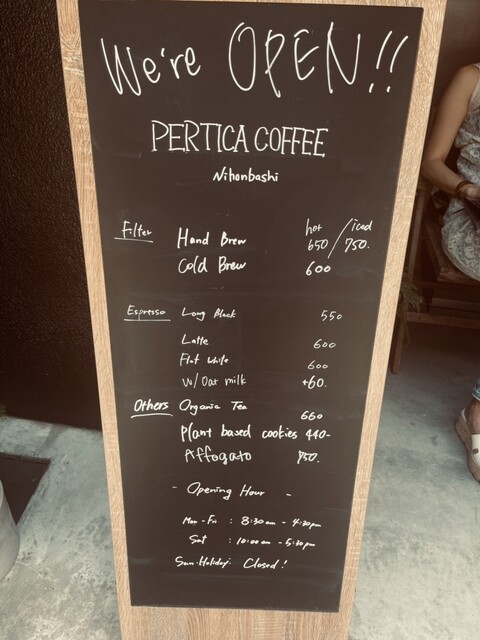 We're OPEN!!
PERTICA COFFEE
Nihonbashi
Filter
hot / iced
Hand Brew 650 / 750.
Cold Brew 600
Espresso Long Black 550
Latte 600
Flat White 600
w/ Oat milk +60.
Others Organic Tea 660
Plant based cookies 440-
Affogato 750.
- Opening Hour -
Mon - Fri : 8:30am - 4:30pm
Sat : 10:00am - 5:30pm
Sun・Holiday: Closed!